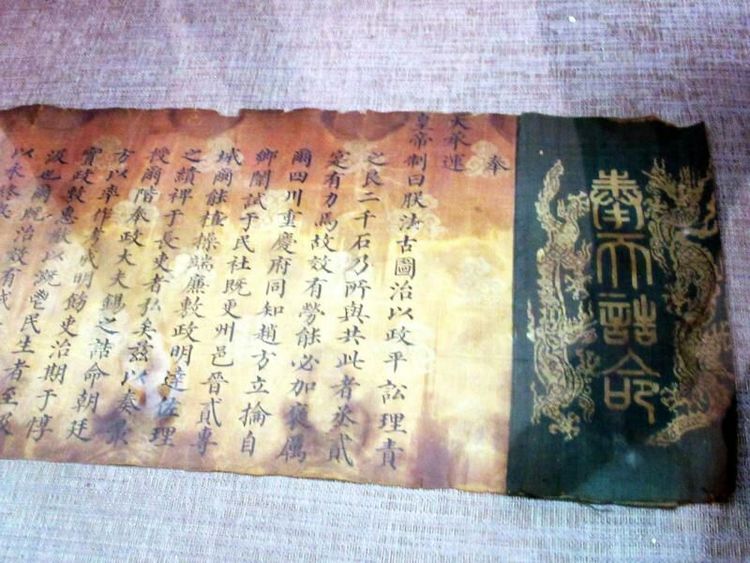 奉天誥命
奉
天承運
皇帝制曰朕法古圖治以政平訟理責
之良二千石乃所與共此者丞貳
定有力焉故效有勞能必加褒屬
爾四川重慶府同知趙方立掄自
鄉闈試于民社既更州邑晉貳專
城爾能植操端廉敷政明達佐理
之績裨于長吏者弘矣茲以奏最
授爾階奉政大夫錫之誥命朝廷
方以率作考成明飭吏治期于惇
實政敷惠猷以澤民生者至殷
汲也爾既治效有成
以永終